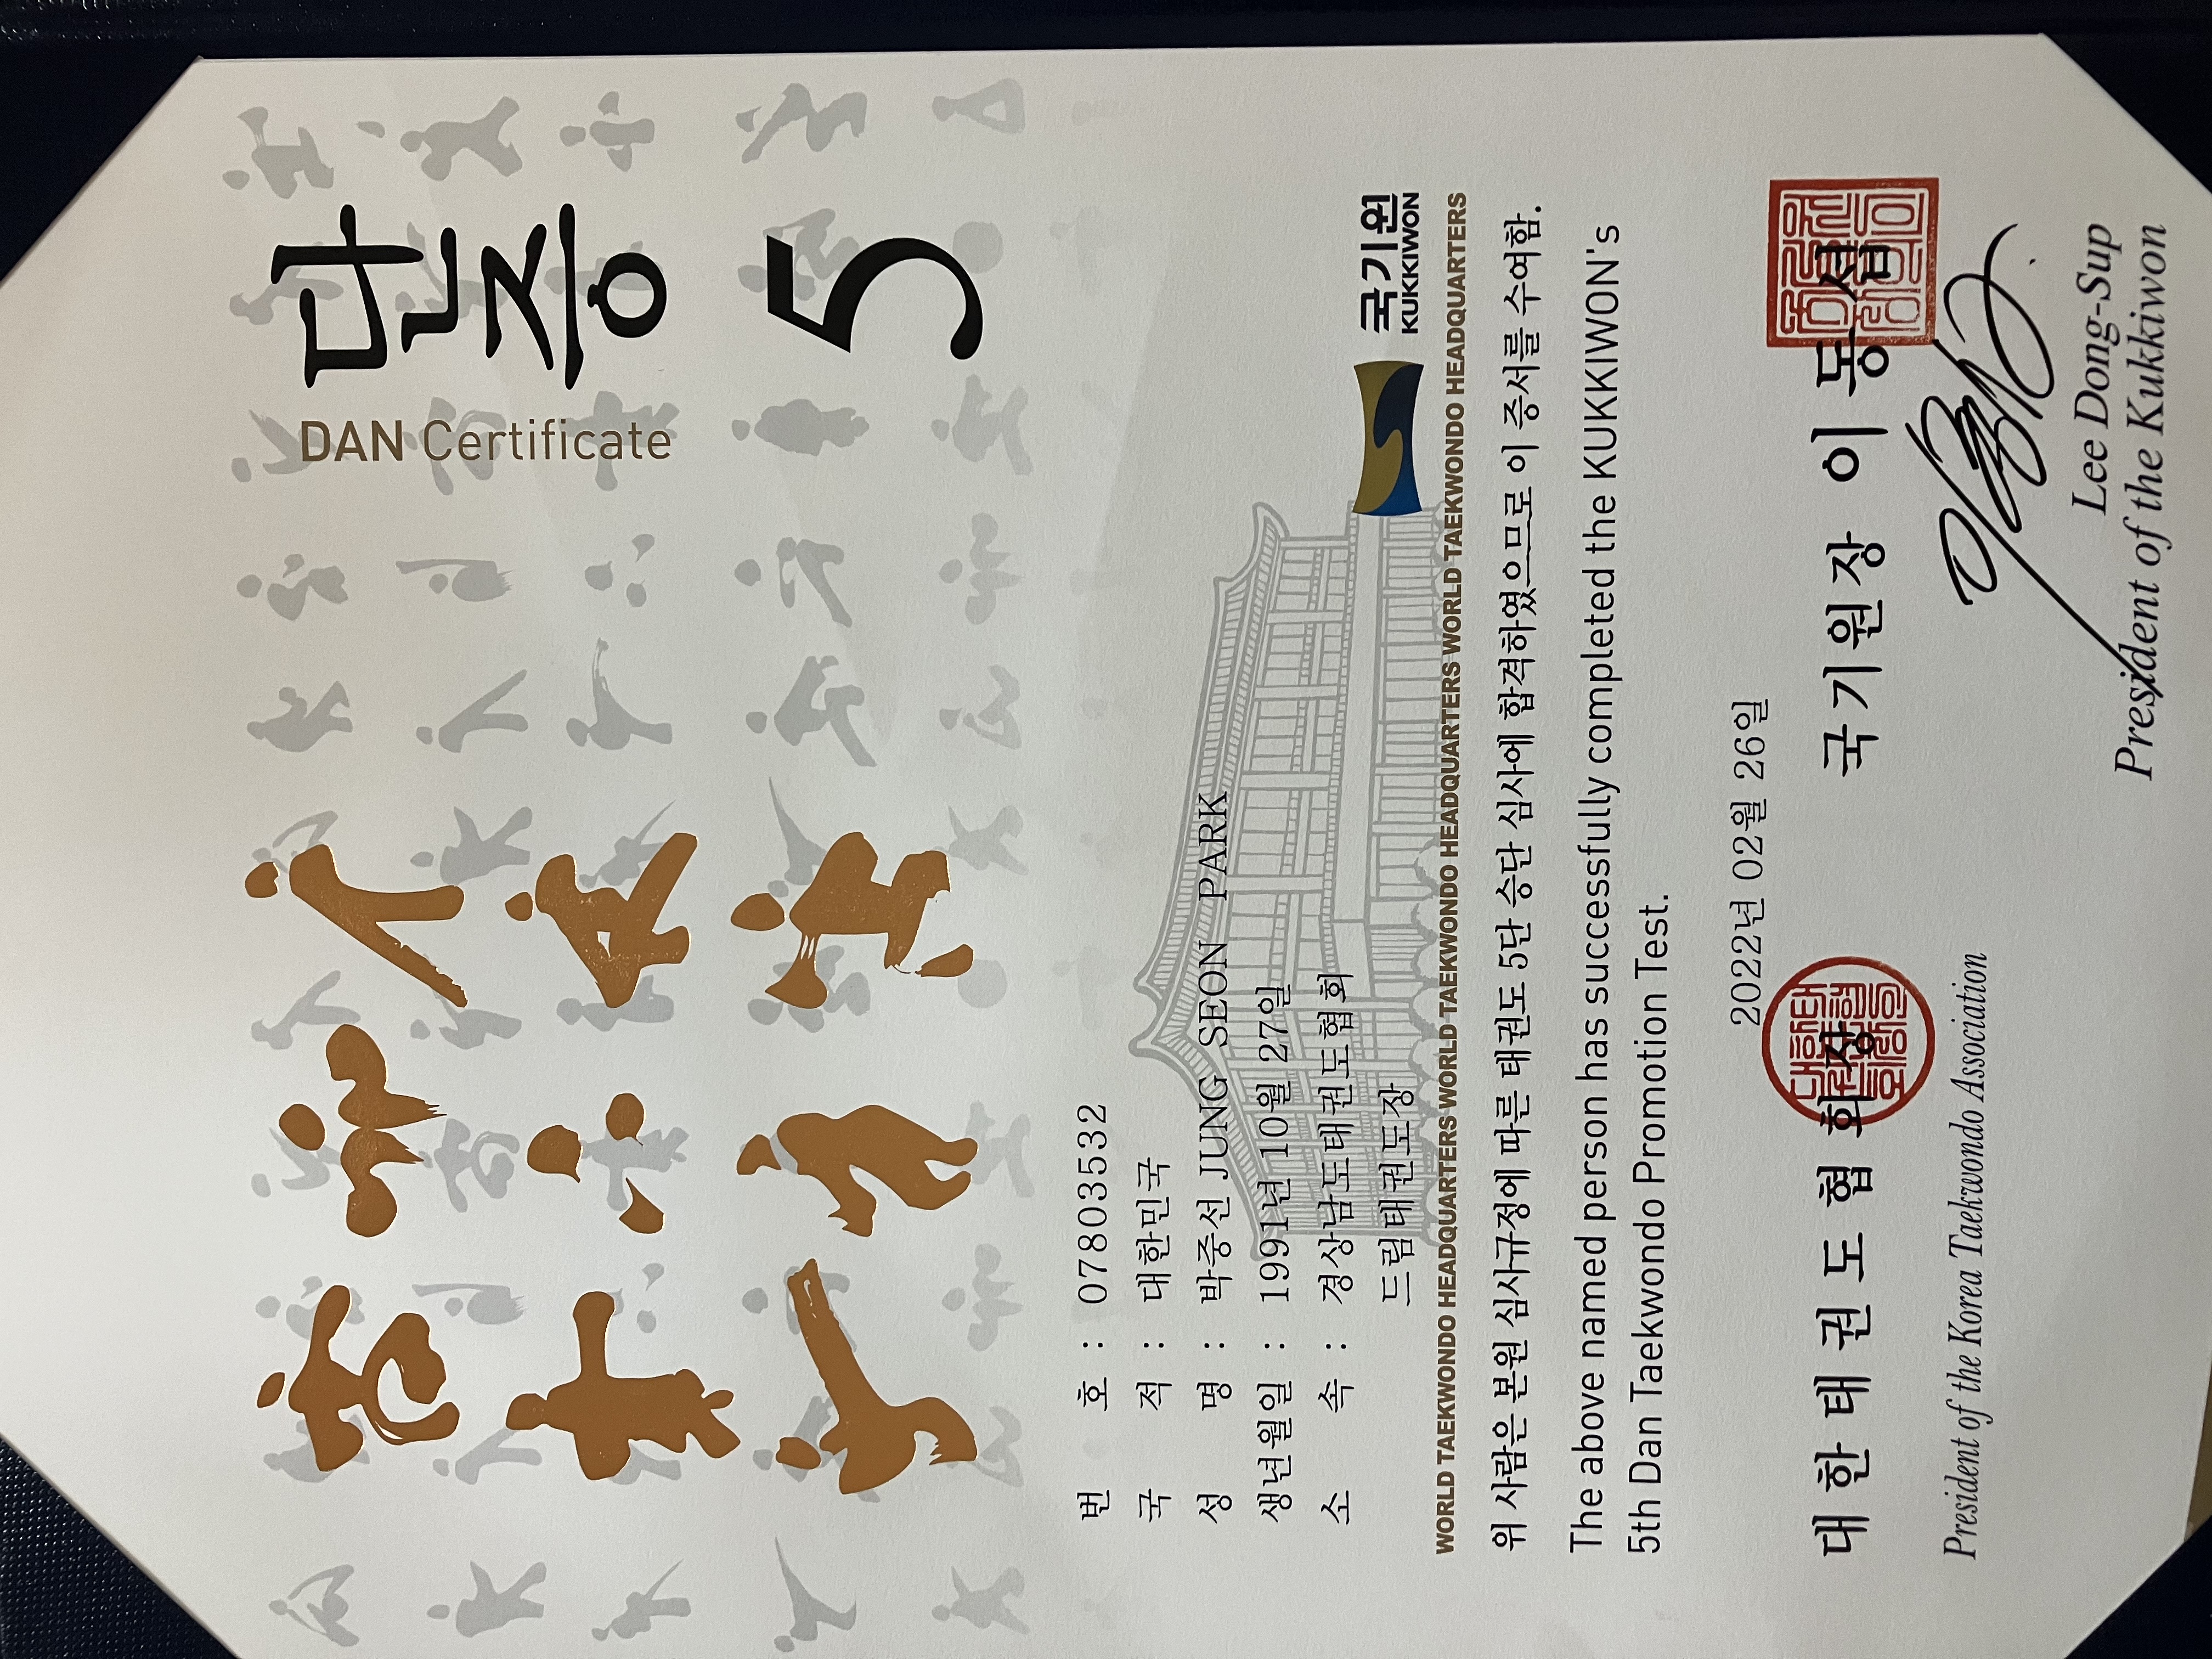 단증
DAN Certificate
5
번 호 : 07803532
국 적 : 대한민국
성 명 : 박중선 JUNG SEON PARK
생년월일 : 1991년 10월 27일
소 속 : 경상남도태권도협회
드림태권도장
국기원
KUKKIWON
WORLD TAEKWONDO HEADQUARTERS WORLD TAEKWONDO HEADQUARTERS WORLD TAEKWONDO HEADQUARTERS WORLD TAEKWONDO HEADQUARTERS WORLD TAEKWONDO HEADQUARTERS
위 사람은 본원 심사규정에 따른 태권도 5단 승단 심사에 합격하였으므로 이 증서를 수여함.
The above named person has successfully completed the KUKKIWON's
5th Dan Taekwondo Promotion Test.
2022년 02월 26일
대한태권도협회장 국기원장 이동섭
President of the Korea Taekwondo Association
Lee Dong-Sup
President of the Kukkiwon